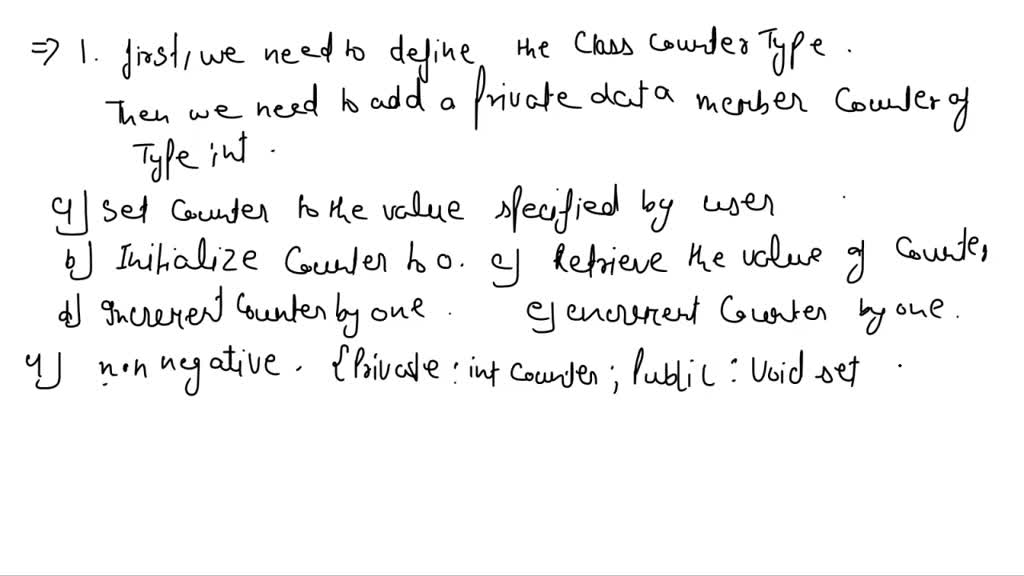 => 1. first, we need to define the Class Counter Type .
Then we need to add a Private data member Counter of
Type int .
a) Set Counter to the value specified by user
b) Initialize Counter to 0. c) Retrieve the value of Counter
d) Increment Counter by one . e) encrement Counter by one .
4) non negative . {Private : int Counter ; Public : Void set .